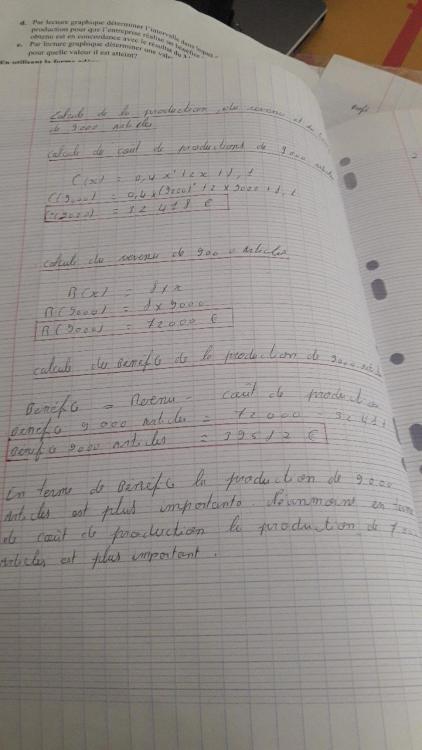 d. Par lecture graphique déterminer l'intervalle dans lequel
production pour que l'entreprise réalise un bénéfice
obtenu est en concordance avec le résultat du
e. Par lecture graphique déterminer une
pour quelle valeur il est atteint?
En utilisant la forme
calculs de la production, du revenu et du
de 9000 articles
calculs du coût de productions de 9000 articles
C(x) = 0,4x² + 2x + 1,1
C(9000) = 0,4 x (9000)² + 2 x 9000 + 1,1
C(9000) = 32 418 €
calculs du revenu de 9000 Articles
R(x) = 8 x x
R(9000) = 8 x 9000
R(9000) = 72000 €
calculs du Bénéfice de la production de 9000 articles
Bénéfice = Revenu - coût de production
Bénéfice 9 000 Articles = 72000
Bénéfice 9000 articles = 39582 €
En terme de Bénéfice la production de 9000
Articles est plus importante. Néanmoins en terme
de coût de production la production de
Articles est plus important.